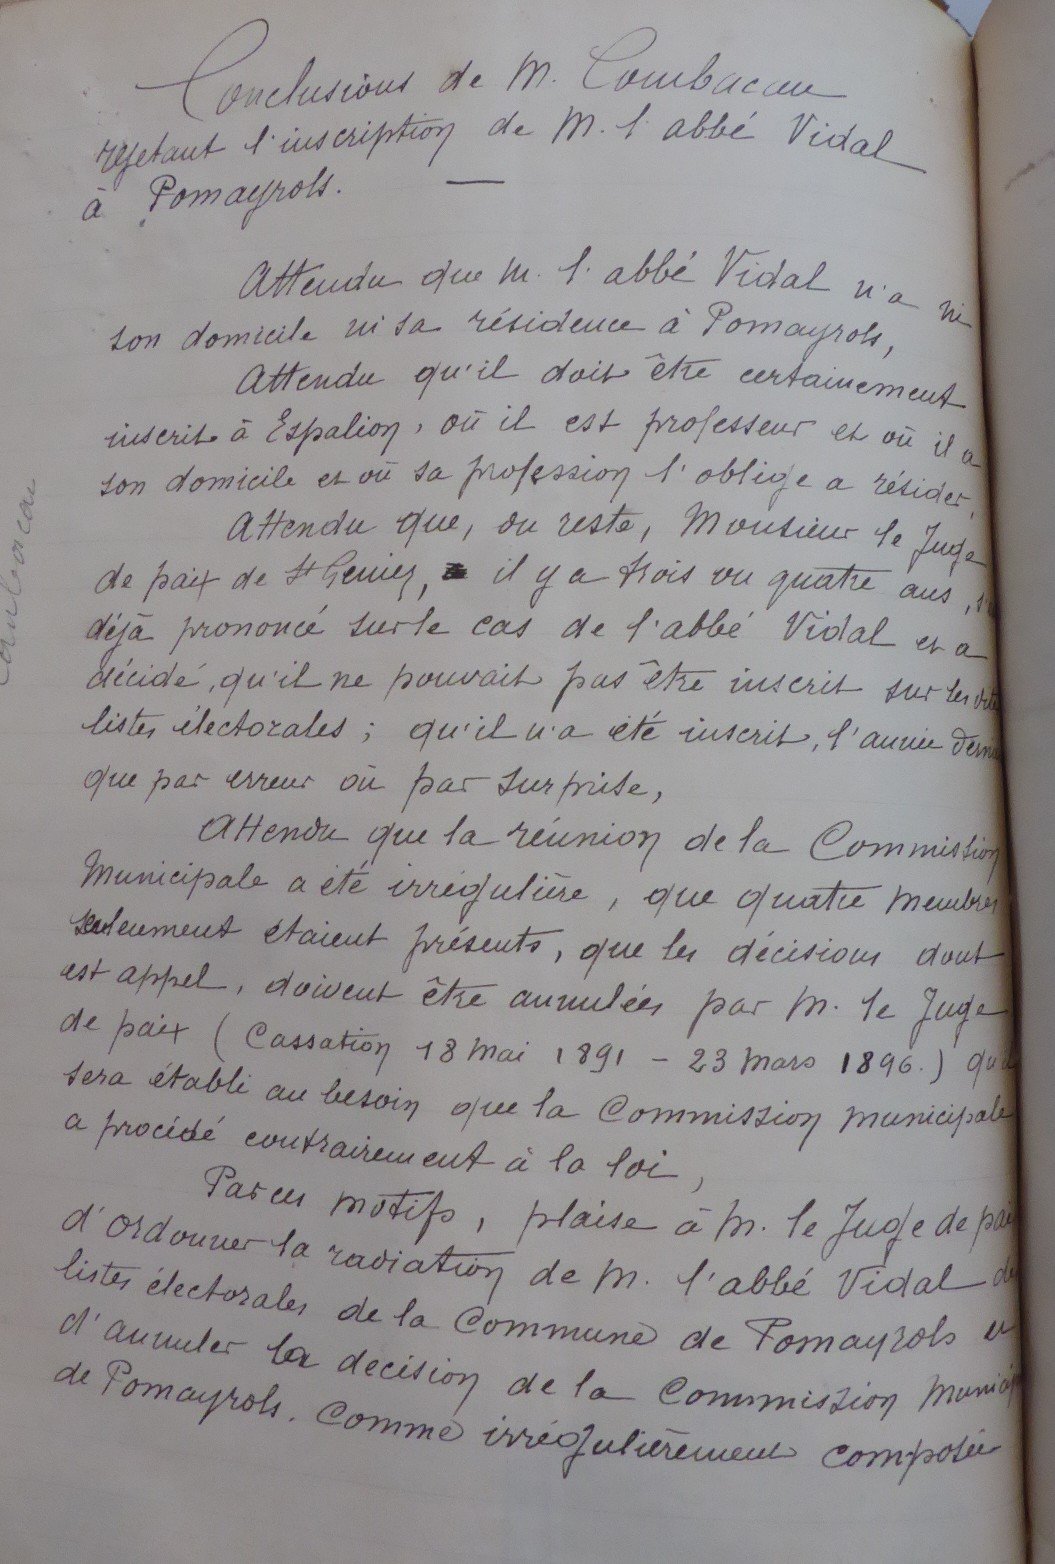 Conclusions de M. Combacau
rejetant l'inscription de M. l'abbé Vidal
à Pomayrols. —
Attendu que M. l'abbé Vidal n'a ni
son domicile ni sa résidence à Pomayrols,
Attendu qu'il doit être certainement
inscrit à Espalion, où il est professeur et où il a
son domicile et où sa profession l'oblige a résider,
Attendu que, du reste, Monsieur le Juge
de paix de St Geniez, il y a trois ou quatre ans,
déjà prononcé sur le cas de l'abbé Vidal et a
décidé, qu'il ne pouvait pas être inscrit sur les
listes électorales ; qu'il n'a été inscrit, l'année
que par erreur où par surprise,
Attendu que la réunion de la Commission
Municipale a été irrégulière, que quatre membres
seulement étaient présents, que les décisions dont
est appel, doivent être annulées par M. le Juge
de paix (Cassation 18 Mai 1891 - 23 Mars 1896.)
sera établi au besoin que la Commission Municipale
a procédé contrairement à la loi,
Par ces motifs, plaise à M. le Juge de paix
d'ordonner la radiation de M. l'abbé Vidal
listes électorales de la Commune de Pomayrols et
d'annuler la decision de la Commission
de Pomayrols. Comme irrégulièrement composée